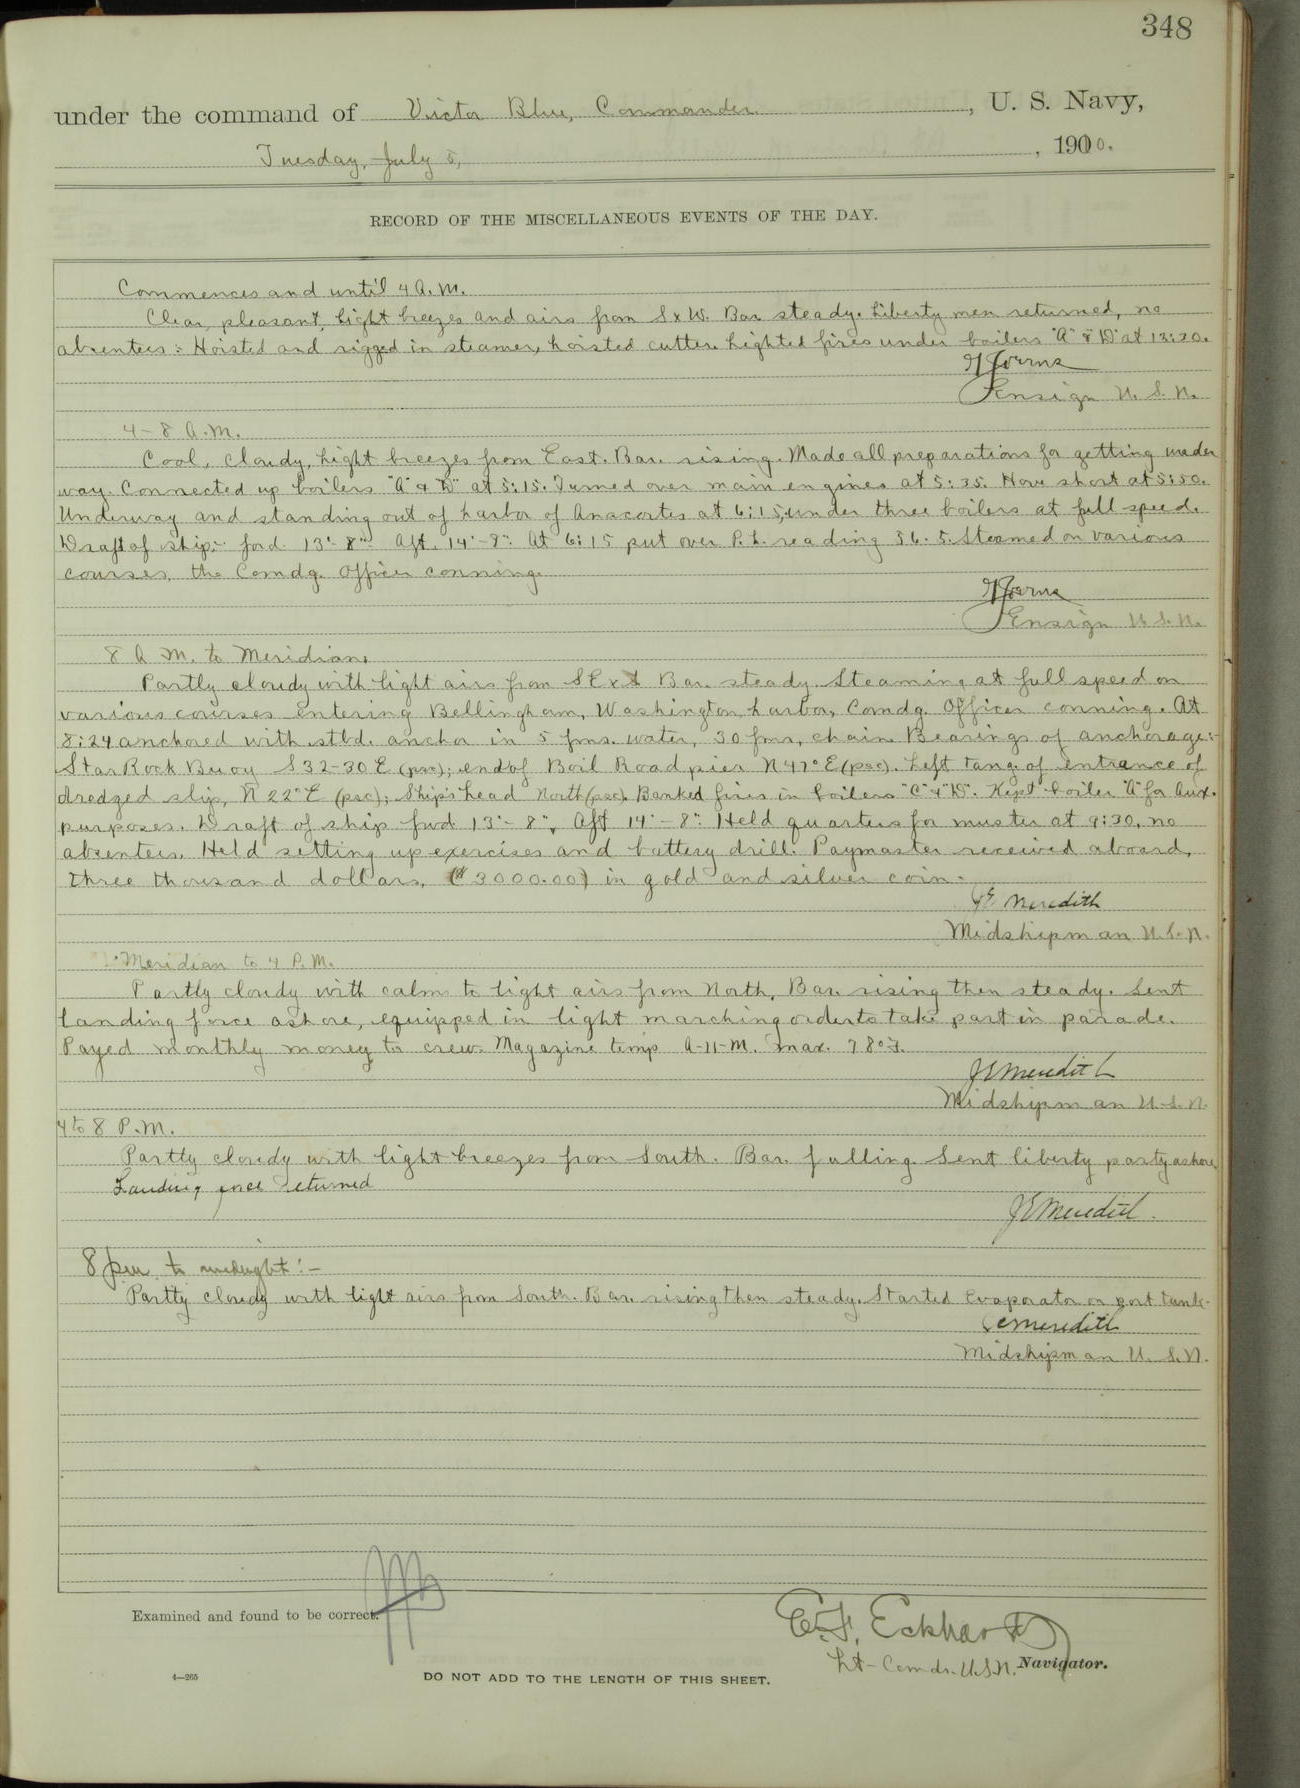 348
under the command of Victor Blue, Commander , U. S. Navy,
Tuesday, July 5, , 1910.
RECORD OF THE MISCELLANEOUS EVENTS OF THE DAY.
Commences and until 4 A.M.
Clear, pleasant, light breezes and airs from SxW. Bar. steady. Liberty men returned, no
absentees. Hoisted and rigged in steamer, hoisted cutter. Lighted fires under boilers "A" & "D" at
Ensign U. S. N.
4-8 A.M.
Cool, cloudy, light breezes from East. Bar. rising. Made all preparations for getting under
way. Connected up boilers "A" & "D" at 5:15. Turned over main engines at 5:35. Hove short at 5:50.
Underway and standing out of harbor of Anacortes at 6:15, under three boilers at full speed.
Draft of ship:- ford 13'-8" Aft. 14'-8". At 6:15 put over P.L. reading 36.5. Steamed on various
courses, the Comdg. Officer conning.
Ensign U. S. N.
8 A M. to Meridian.
Partly cloudy with light airs from SE Bar. steady. Steaming at full speed on
various courses entering Bellingham, Washington harbor, Comdg. Officer conning. At
8:24 anchored with stbd. anchor in 5 fms. water, 30 fms, chain. Bearings of anchorage:-
Star Rock Buoy S32-30E (psc); end of Boil Road pier N47°E (psc). Left tang. of entrance of
dredged slip, N 22°E (psc); Ship's head North (psc). Banked fires in boilers "C" & "D". Kept boiler "A" for Aux.
purposes. Draft of ship fwd 13'-8", Aft 14'-8". Held quarters for muster at 9:30, no
absentees. Held setting up exercises and battery drill. Paymaster received aboard,
three thousand dollars, ($3000.00) in gold and silver coin.
JE Meredith
Midshipman U.S.N.
Meridian to 4 P.M.
Partly cloudy with calm to light airs from North. Bar. rising then steady. Sent
landing force ashore, equipped in light marching order to take part in parade.
Payed monthly money to crew. Magazine temp A-11-M. max. 78°F.
JE Meredith
Midshipman U.S.N.
4 to 8 P.M.
Partly cloudy with light breezes from South. Bar. falling. Sent liberty party ashore.
Landing force returned
JE Meredith.
8 pm to midnight:-
Partly cloudy with light airs from South. Bar. rising then steady. Started Evaporator on port tank.
JE Meredith
Midshipman U. S.N.
Examined and found to be correct.
E.F. Eckhardt
Lt-Comdr. U.S.N. Navigator.
4—265
DO NOT ADD TO THE LENGTH OF THIS SHEET.